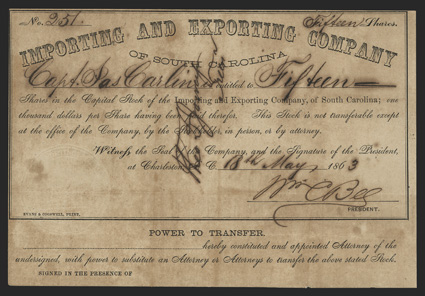 No. 251. Fifteen Shares.
IMPORTING AND EXPORTING COMPANY
OF SOUTH CAROLINA
Capt. Jas Carlin is entitled to Fifteen
Shares in the Capital Stock of the Importing and Exporting Company, of South Carolina; one
thousand dollars per Share having been paid therefor. This Stock is not transferable except
at the office of the Company, by the Stockholder, in person, or by attorney.
Witness, the Seal of the Company, and the Signature of the President,
at Charleston, S. C. 18th May, 1863
Wm C Bee
PRESIDENT.
EVANS & COGSWELL, PRINT.
POWER TO TRANSFER.
hereby constituted and appointed Attorney of the
undersigned, with power to substitute an Attorney or Attorneys to transfer the above stated Stock.
SIGNED IN THE PRESENCE OF